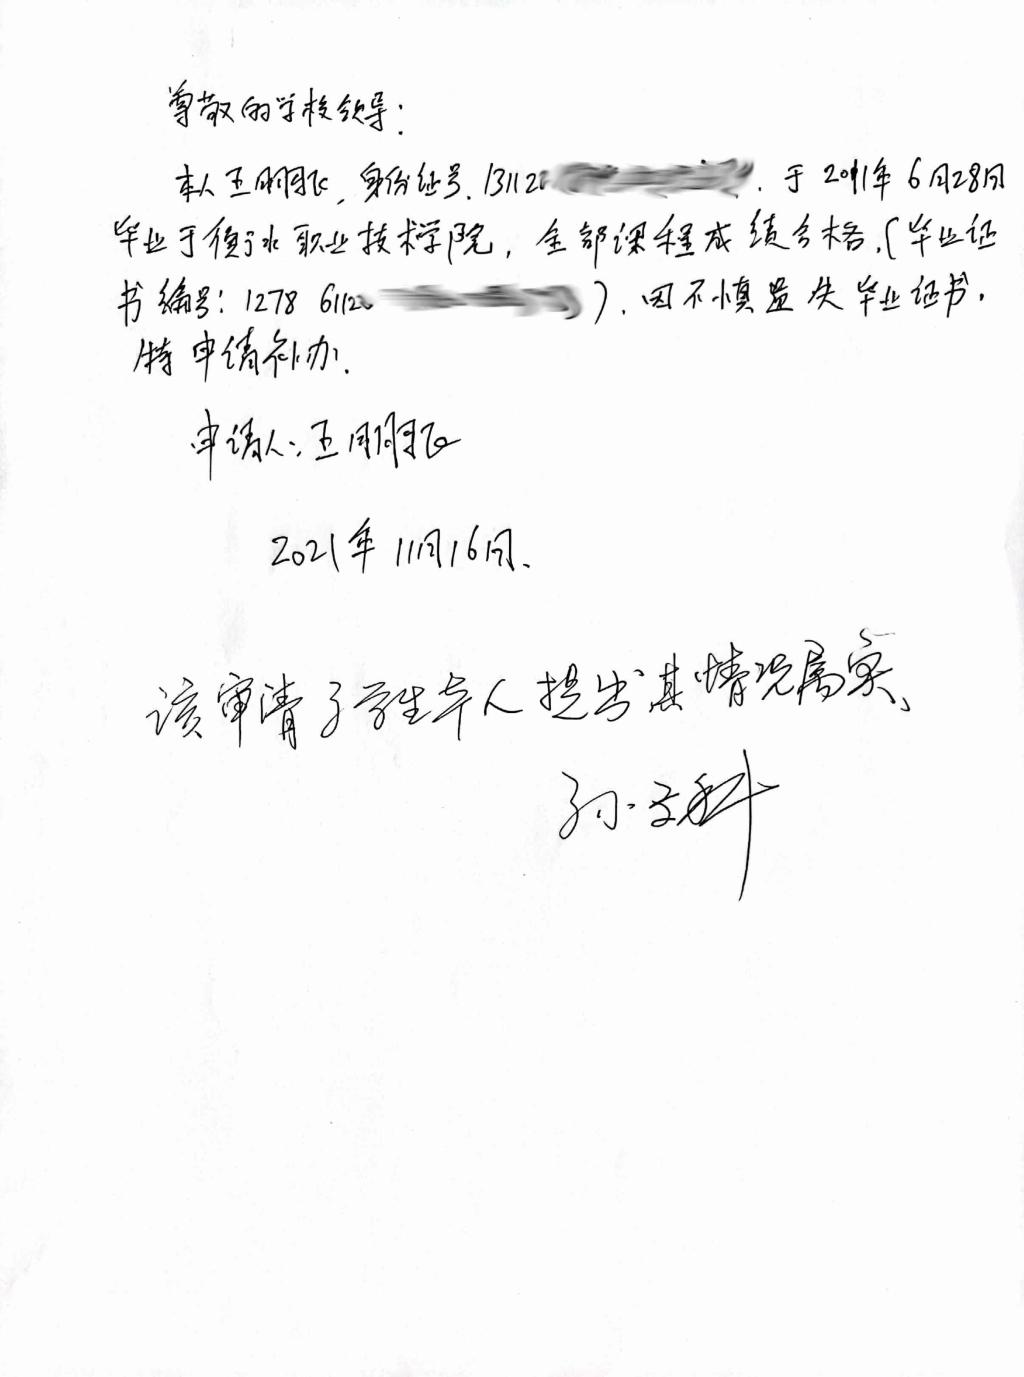 尊敬的学校领导：
本人王鹏飞，身份证号，13112 ，于2011年6月28日
毕业于衡水职业技术学院，全部课程成绩合格，（毕业证
书编号：1278 6112 ），因不慎遗失毕业证书，
特申请补办．
申请人：王鹏飞
2021年11月16日．
该申请了学生本人提出其情况属实、
孙文科